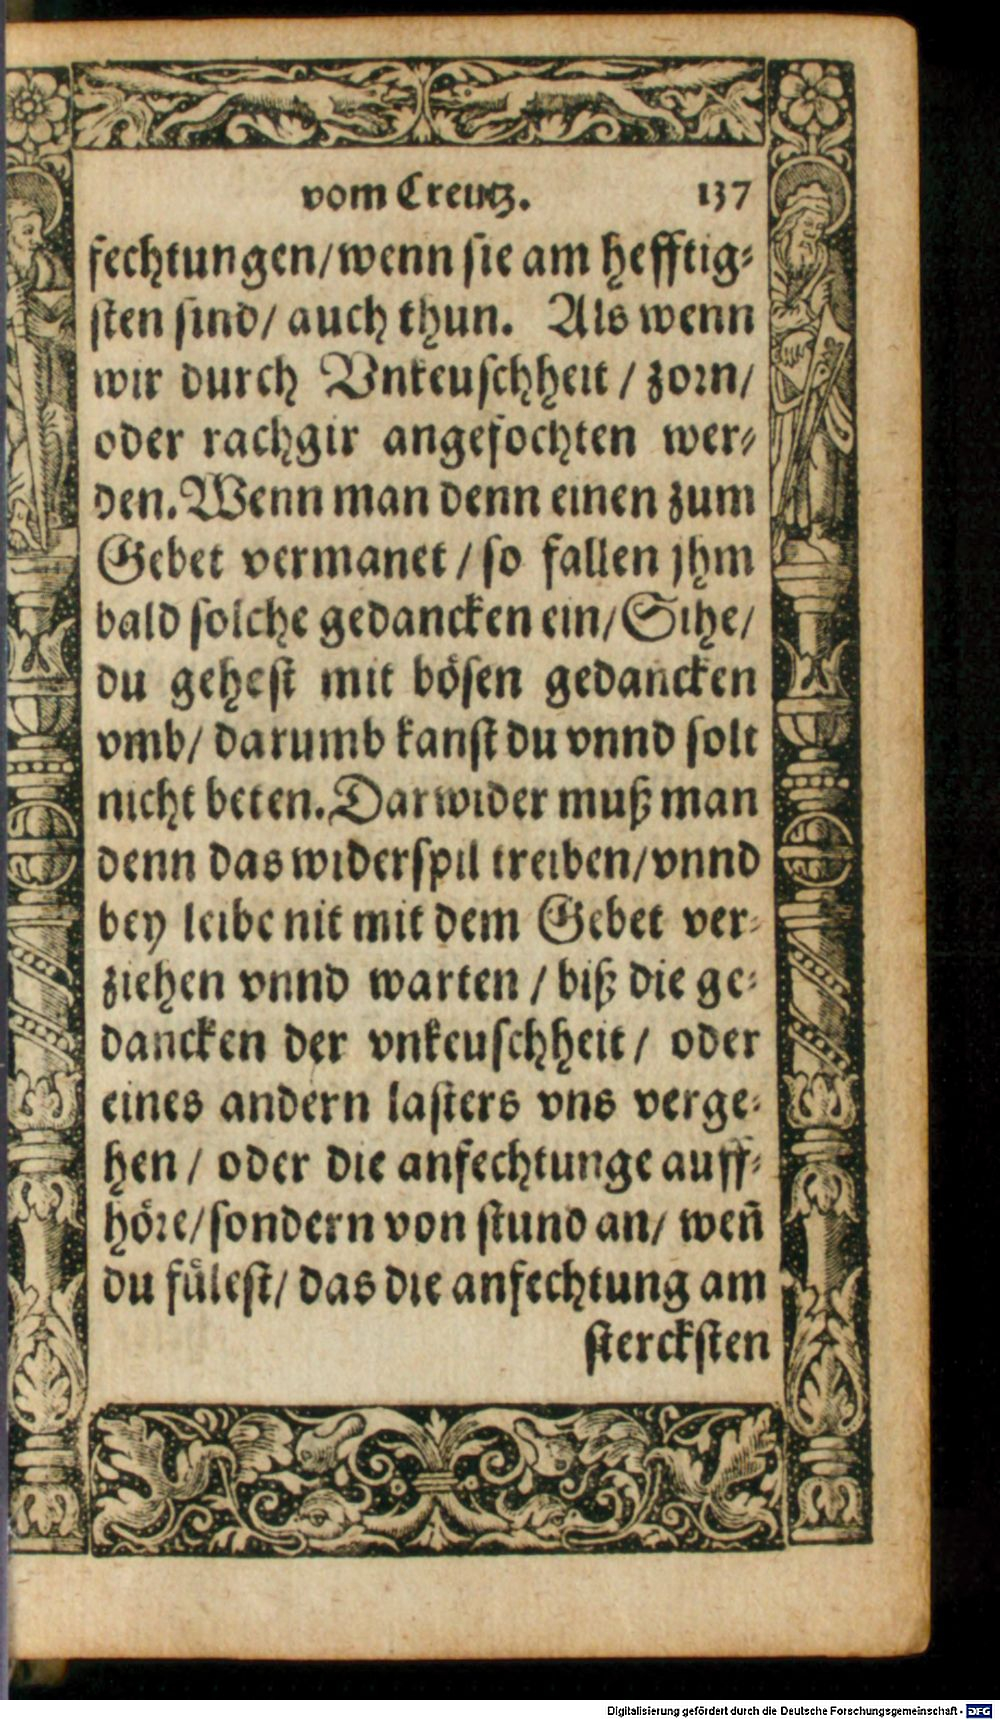 vom Creutz. 137
fechtungen/wenn sie am hefftig-
sten sind/ auch thun. Als wenn
wir durch Vnkeuschheit / zorn/
oder rachgir angefochten wer-
den. Wenn man denn einen zum
Gebet vermanet / so fallen jhm
bald solche gedancken ein/ Sihe/
du gehest mit bösen gedancken
vmb/ darumb kanst du vnnd solt
nicht beten. Darwider muß man
denn das widerspil treiben/vnnd
bey leibe nit mit dem Gebet ver-
ziehen vnnd warten / biß die ge-
dancken der vnkeuschheit/ oder
eines andern lasters vns verge-
hen / oder die anfechtunge auff-
höre/sondern von stund an/ weñ
du fülest/ das die anfechtung am
stercksten
Digitalisierung gefördert durch die Deutsche Forschungsgemeinschaft - DFG